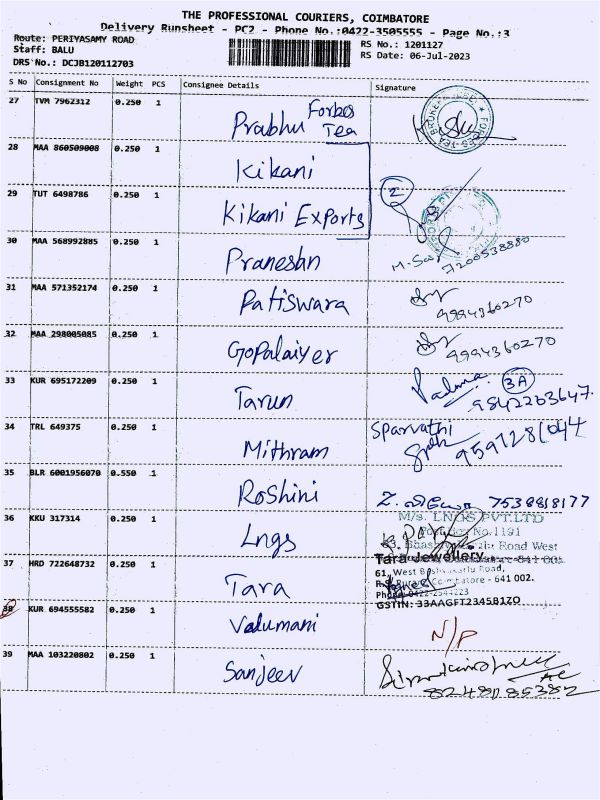 THE PROFESSIONAL COURIERS, COIMBATORE
Delivery Runsheet - PC2 - Phone No.:0422-3505555 - Page No.:3
Route: PERIYASAMY ROAD
RS No.: 1201127
Staff: BALU
RS Date: 06-Jul-2023
DRS No.: DCJB120112703
S No Consignment No Weight PCS Consignee Details Signature
27 TVM 7962312 0.250 1 Prabhu Forbes Tea
28 MAA 860509008 0.250 1 Kikani
29 TUT 6498786 0.250 1 Kikani Exports 2
30 MAA 568992885 0.250 1 Praneshn 7200538880
31 MAA 571352174 0.250 1 Patiswara 9994360270
32 MAA 298005085 0.250 1 Gopalaiyer 9994360270
33 KUR 695172209 0.250 1 Tarun Padma 3A 9842203647
34 TRL 649375 0.250 1 Mithram Sparvathi 9597281044
35 BLR 6001956070 0.550 1 Roshini 7538818177
36 KKU 317314 0.250 1 Lngs
M/s. LNGS PVT.LTD
No.1191
Road West
37 HRD 722648732 0.250 1 Tara
Tara Jewellery
61, West Road,
R.S. Puram, Coimbatore - 641 002.
GSTIN: 33AAGFT2345B1ZO
38 KUR 694555582 0.250 1 Valumani N/P
39 MAA 103220802 0.250 1 Sanjeev